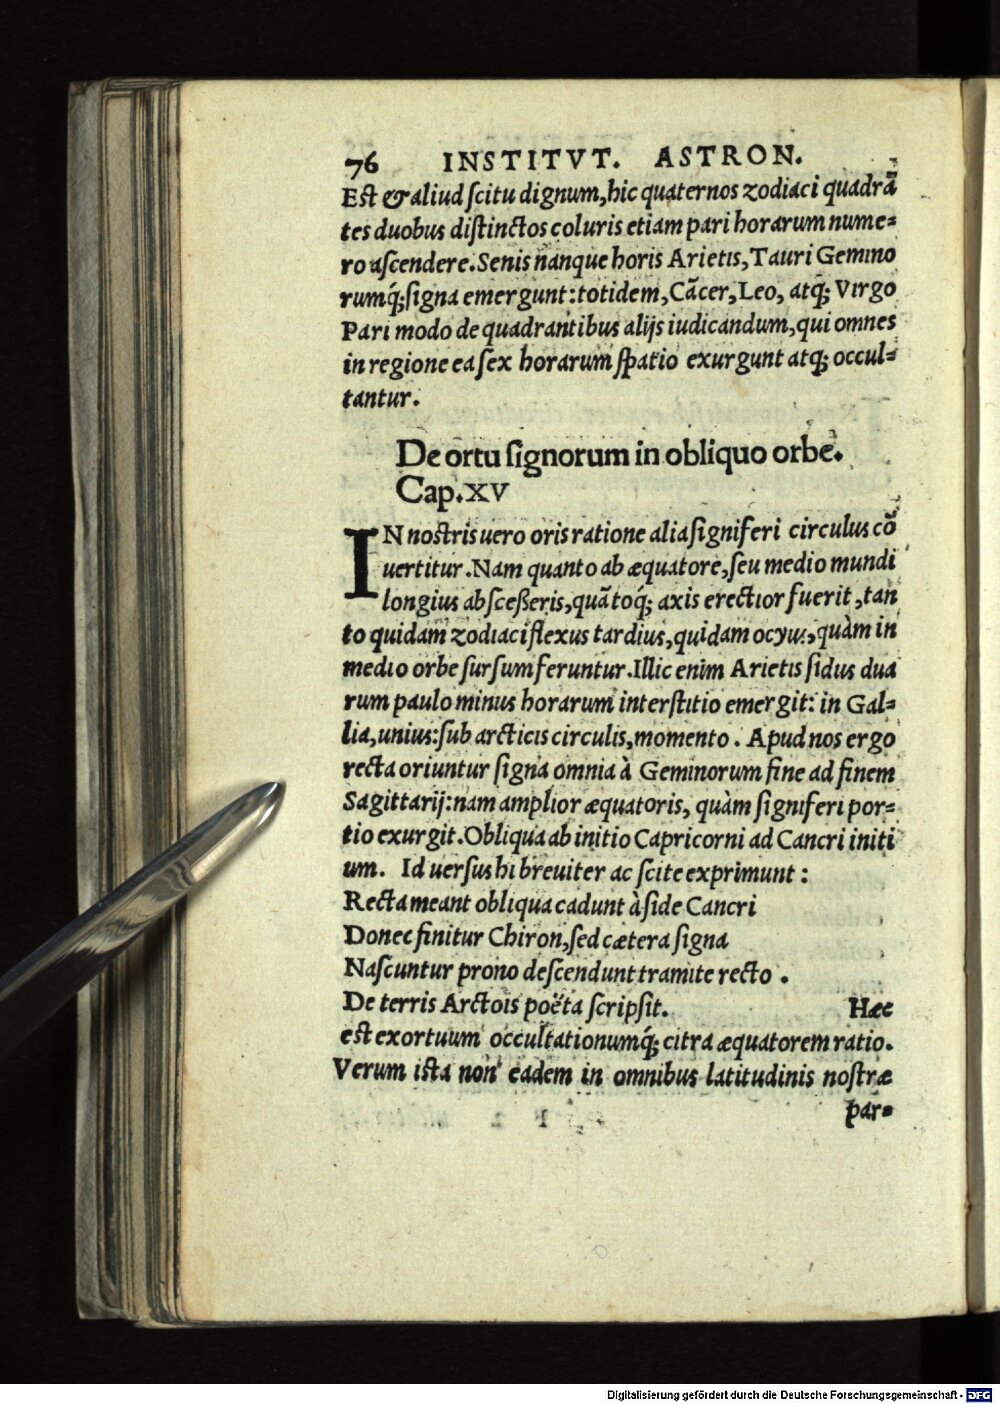 76 INSTITVT. ASTRON.
Est & aliud scitu dignum, hic quaternos zodiaci quadrā
tes duobus distinctos coluris etiam pari horarum nume=
ro ascendere. Senis nanque horis Arietis, Tauri Gemino
rumq́; signa emergunt: totidem, Cācer, Leo, atq; Virgo
Pari modo de quadrantibus alijs iudicandum, qui omnes
in regione ea sex horarum spatio exurgunt atq; occul=
tantur.
De ortu signorum in obliquo orbe.
Cap. XV
IN nostris uero oris ratione alia signiferi circulus cō
uertitur. Nam quanto ab æquatore, seu medio mundi
longius abscesseris, quātoq́; axis erectior fuerit, tan
to quidam zodiaci flexus tardius, quidam ocyus, quàm in
medio orbe sursum feruntur. Illic enim Arietis sidus dua
rum paulo minus horarum interstitio emergit: in Gal=
lia, unius: sub arcticis circulis, momento. Apud nos ergo
recta oriuntur signa omnia à Geminorum fine ad finem
Sagittarij: nam amplior æquatoris, quàm signiferi por=
tio exurgit. Obliqua ab initio Capricorni ad Cancri initi
um. Id uersus hi breuiter ac scite exprimunt:
Recta meant obliqua cadunt à side Cancri
Donec finitur Chiron, sed cætera signa
Nascuntur prono descendunt tramite recto.
De terris Arctois poëta scripsit. Hæc
est exortuum occultationumq́; citra æquatorem ratio.
Verum ista non eadem in omnibus latitudinis nostræ
par=
Digitalisierung gefördert durch die Deutsche Forschungsgemeinschaft - DFG